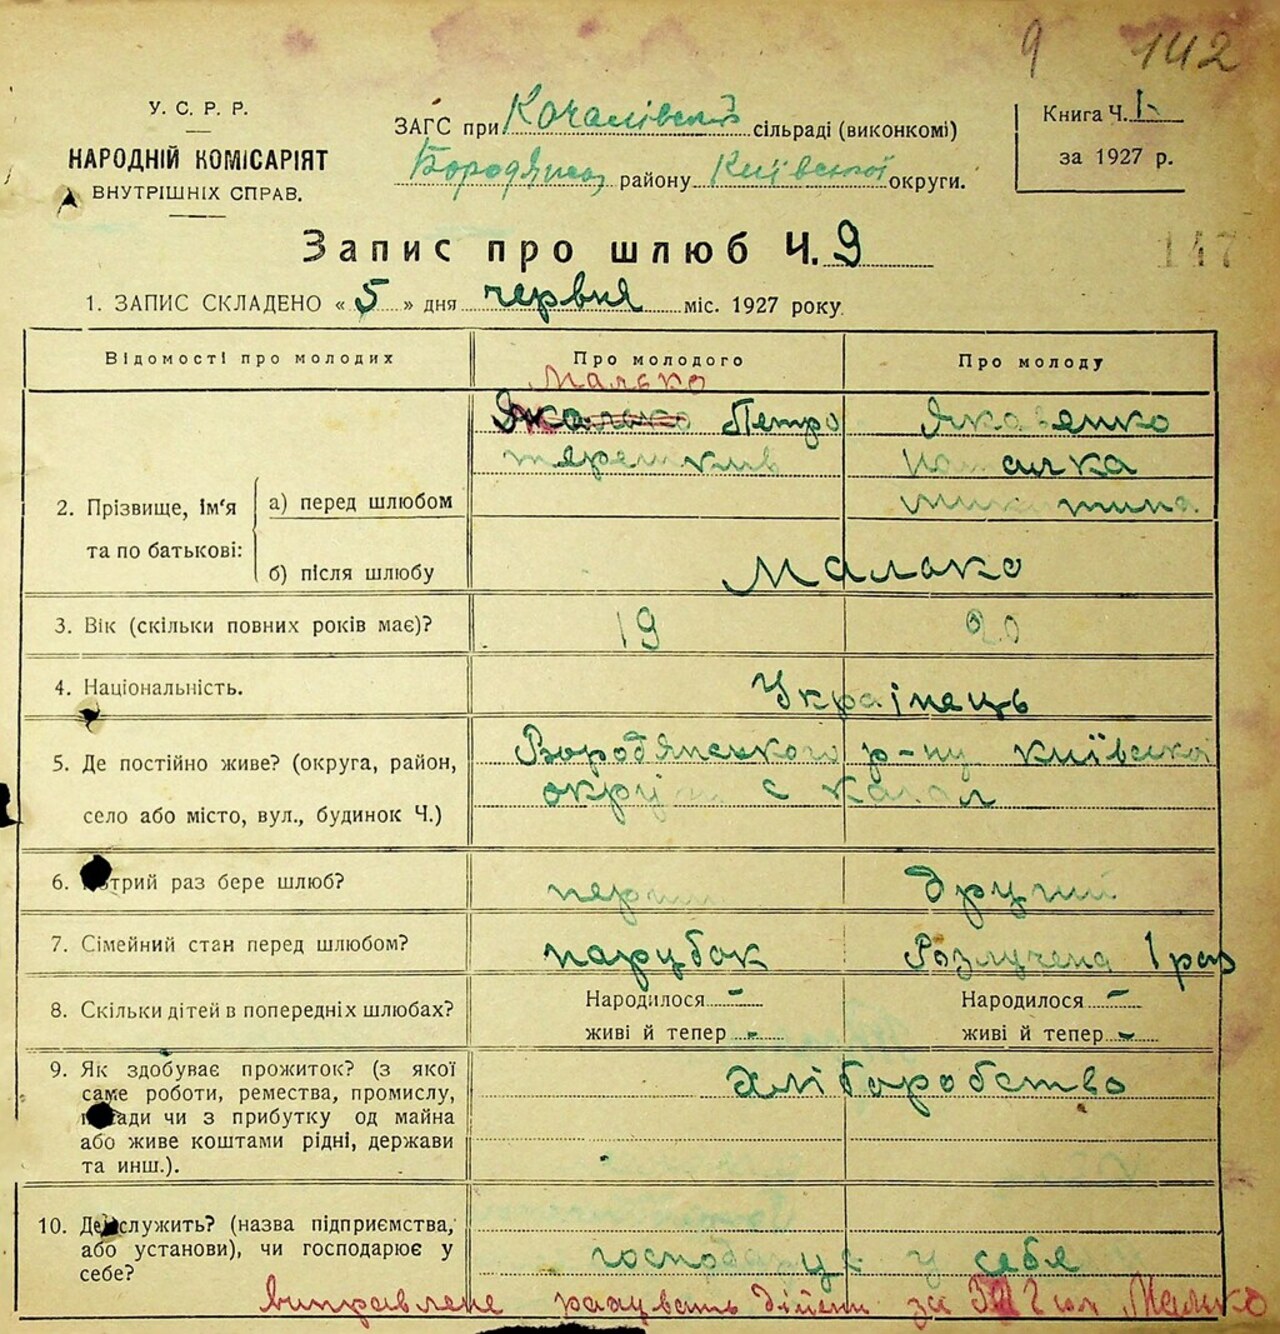 9 142
У. С. Р. Р.
НАРОДНІЙ КОМІСАРІЯТ
ВНУТРІШНІХ СПРАВ.
ЗАГС при Качалівській сільраді (виконкомі)
району Київської округи.
Книга Ч. 1
за 1927 р.
147
Запис про шлюб Ч. 9
1. ЗАПИС СКЛАДЕНО « 5 » дня червня міс. 1927 року.
Відомості про молодих Про молодого Про молоду
Малько
Петро Яковенко
2. Прізвище, ім'я та по батькові:
а) перед шлюбом
б) після шлюбу Малько
3. Вік (скільки повних років має)? 19 20
4. Національність. Украінець
5. Де постійно живе? (округа, район, село або місто, вул., будинок Ч.) Бородянського р-ну київської
округи с
6. Котрий раз бере шлюб? перший другий
7. Сімейний стан перед шлюбом? парубок Розлучена 1 раз
8. Скільки дітей в попередніх шлюбах? Народилося - Народилося -
живі й тепер - живі й тепер -
9. Як здобуває прожиток? (з якої хліборобство
саме роботи, ремества, промислу,
посади чи з прибутку од майна
або живе коштами рідні, держави
та инш.).
10. Де служить? (назва підприємства,
або установи), чи господарює у господарує у себе
себе?
виправлене рахувать дійсни за Малько